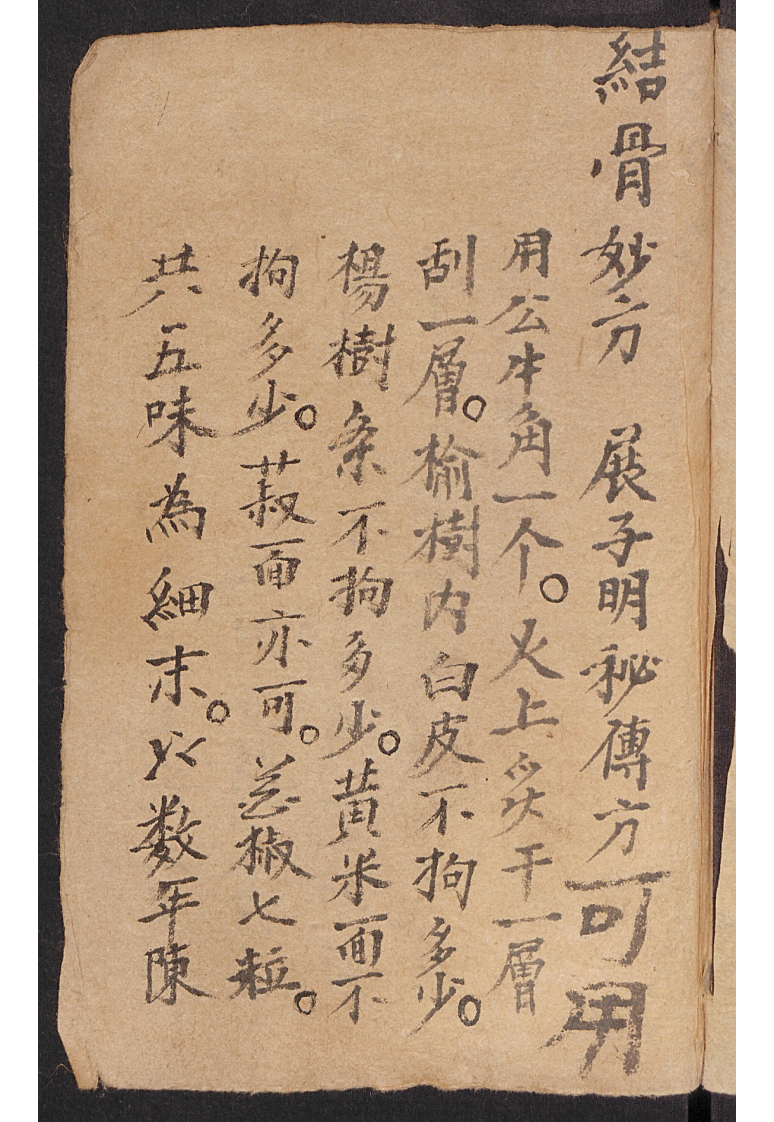 結骨妙方 展子明秘傳方可用
用公牛角一个。火上炙干一層
刮一層。榆樹内白皮不拘多少。
楊樹条不拘多少。黃米面不
拘多少。菽面亦可。花椒七粒。
共五味為細末。以数年陳